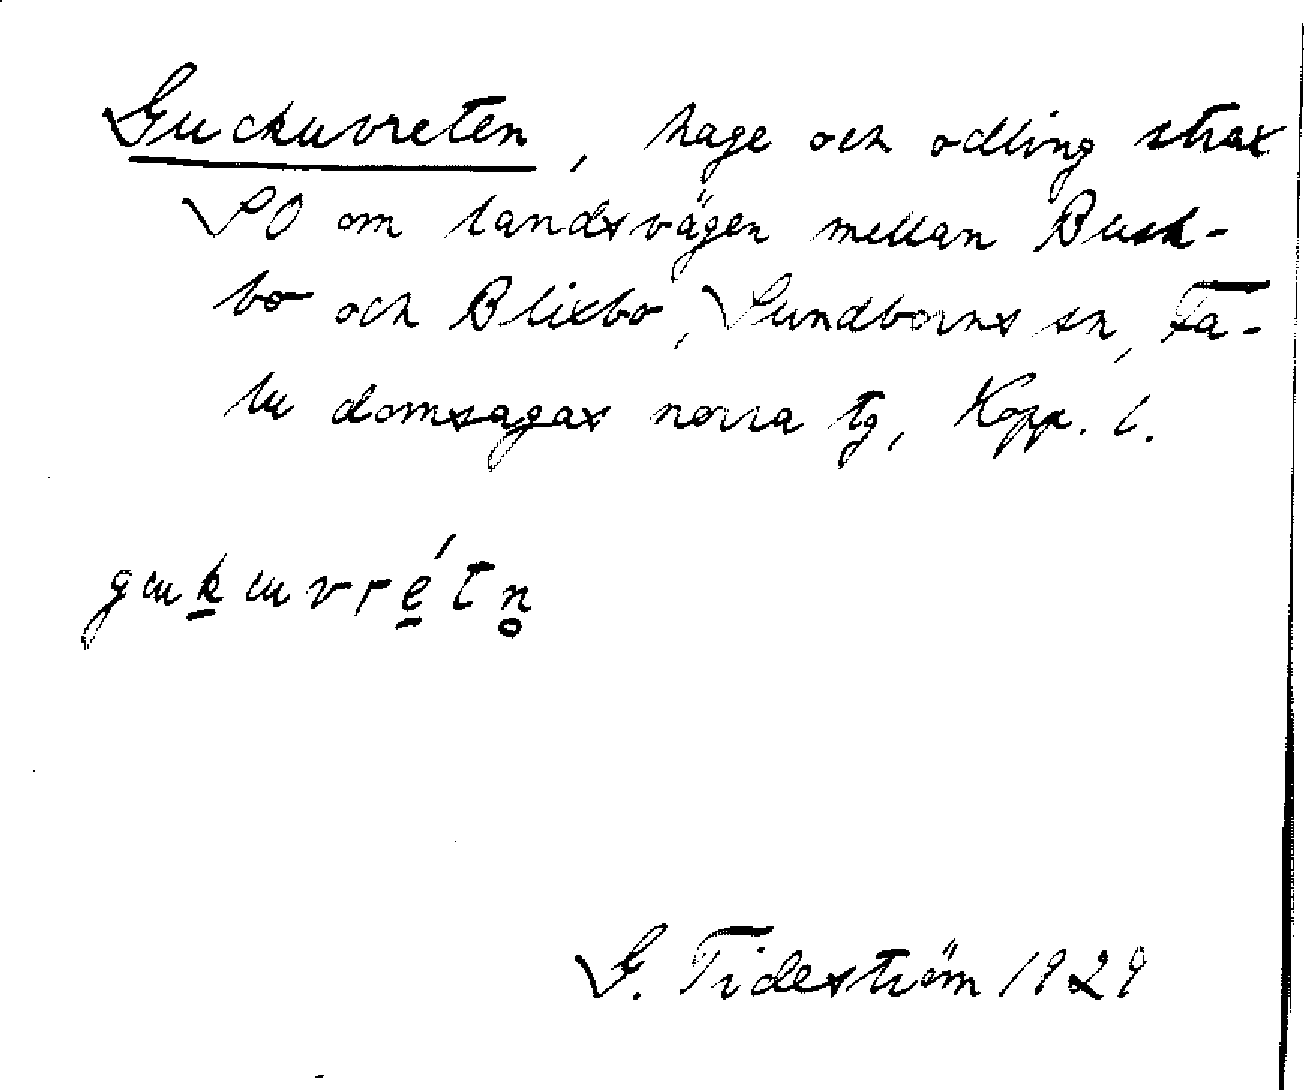 Guckuvreten, hage och odling strax
SO om landsvägen mellan Busk-
bo och Blixbo, Sundborns sn, Fa-
lu domsagas norra tg, Kopp. l.
gukuvrét̲n̥
G. Tideström 1929